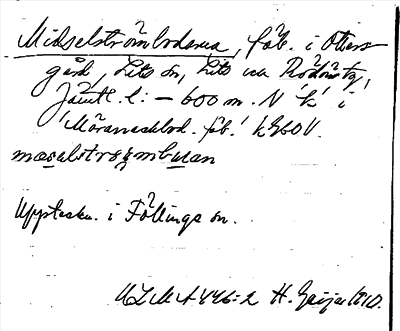 Midselströmbodarna, fäb. i Otters-
gård, Lits sn, Lits och Rödöns tg,
Jämtl. l: – 600 m. N 'k' i
'Möranaselbod. fäb.' k 960 V.
mæsalstrømbuan
Uppteckn. i Föllinge sn.
ULMA 446:2 H. Geijer 1910.